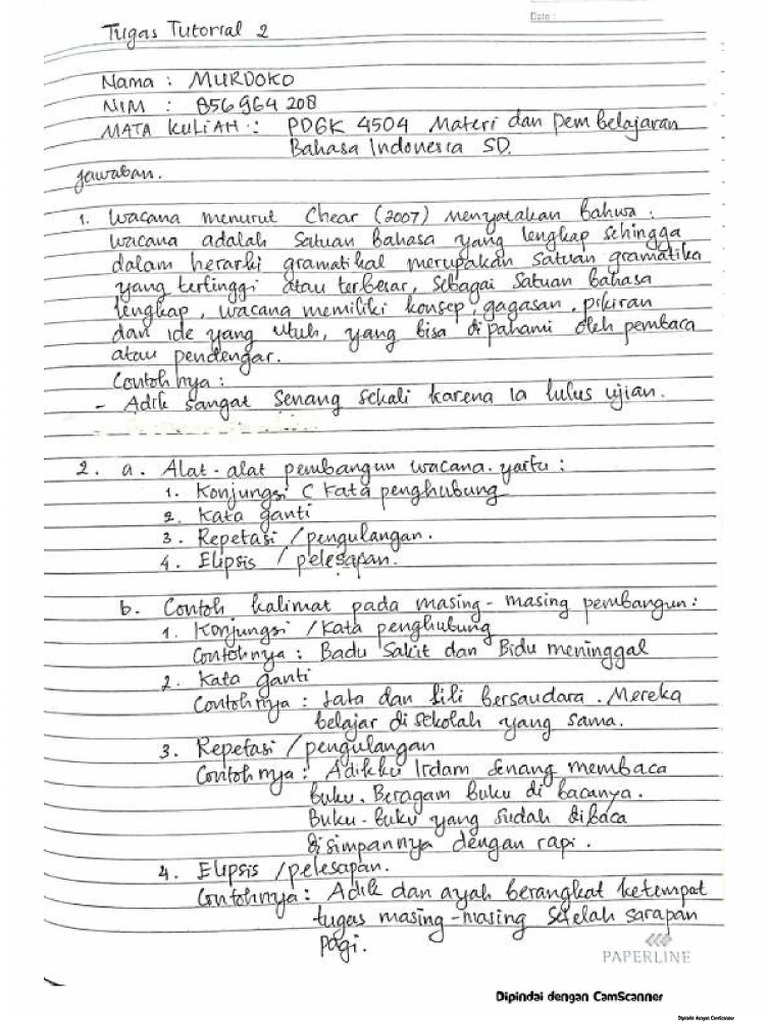 Date :
Tugas Tutorial 2
Nama : MURDOKO
NIM : 856964208
MATA KuLiAH : PDGK 4504 Materi dan Pembelajaran
Bahasa Indonesia SD.
Jawaban.
1. Wacana menurut Chear (2007) Menyatakan Bahwa :
Wacana adalah Satuan Bahasa yang lengkap sehingga
dalam herarki gramatikal merupakan Satuan gramatika
yang tertinggi atau terbesar, Sebagai Satuan bahasa
lengkap, wacana memiliki konsep, gagasan, pikiran
dan ide yang utuh, yang bisa di pahami oleh pembaca
atau pendengar.
Contohnya :
- Adik sangat Senang Sekali karena ia lulus ujian.
2. a. Alat-alat pembangun wacana. yaitu :
1. Konjungsi ( Kata penghubung
2. Kata ganti
3. Repetasi / pengulangan.
4. Elipsis / pelesapan.
b. Contoh kalimat pada masing-masing pembangun :
1. Konjungsi / Kata penghubung
Contohnya : Badu Sakit dan Bidu meninggal
2. Kata ganti
Contohnya : dan Lili bersaudara. Mereka
belajar di sekolah yang sama.
3. Repetasi / pengulangan
Contohnya : Adikku Irdam Senang membaca
buku. Beragam buku di bacanya.
Buku-buku yang sudah dibaca
disimpannya dengan rapi.
4. Elipsis / pelesapan.
Contohnya : Adik dan ayah berangkat ketempat
tugas masing-masing Setelah sarapan
pagi.
PAPERLINE
Dipindai dengan CamScanner
Dipindai dengan CamScanner